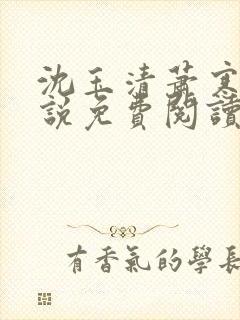 沈玉清蕭寒
說免費閱讀
有香氣的學長